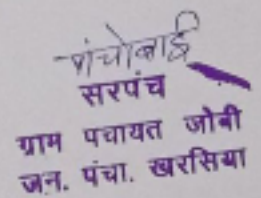 पांचोबाई
सरपंच
ग्राम पचायत जोबी
जन. पंचा. खरसिया